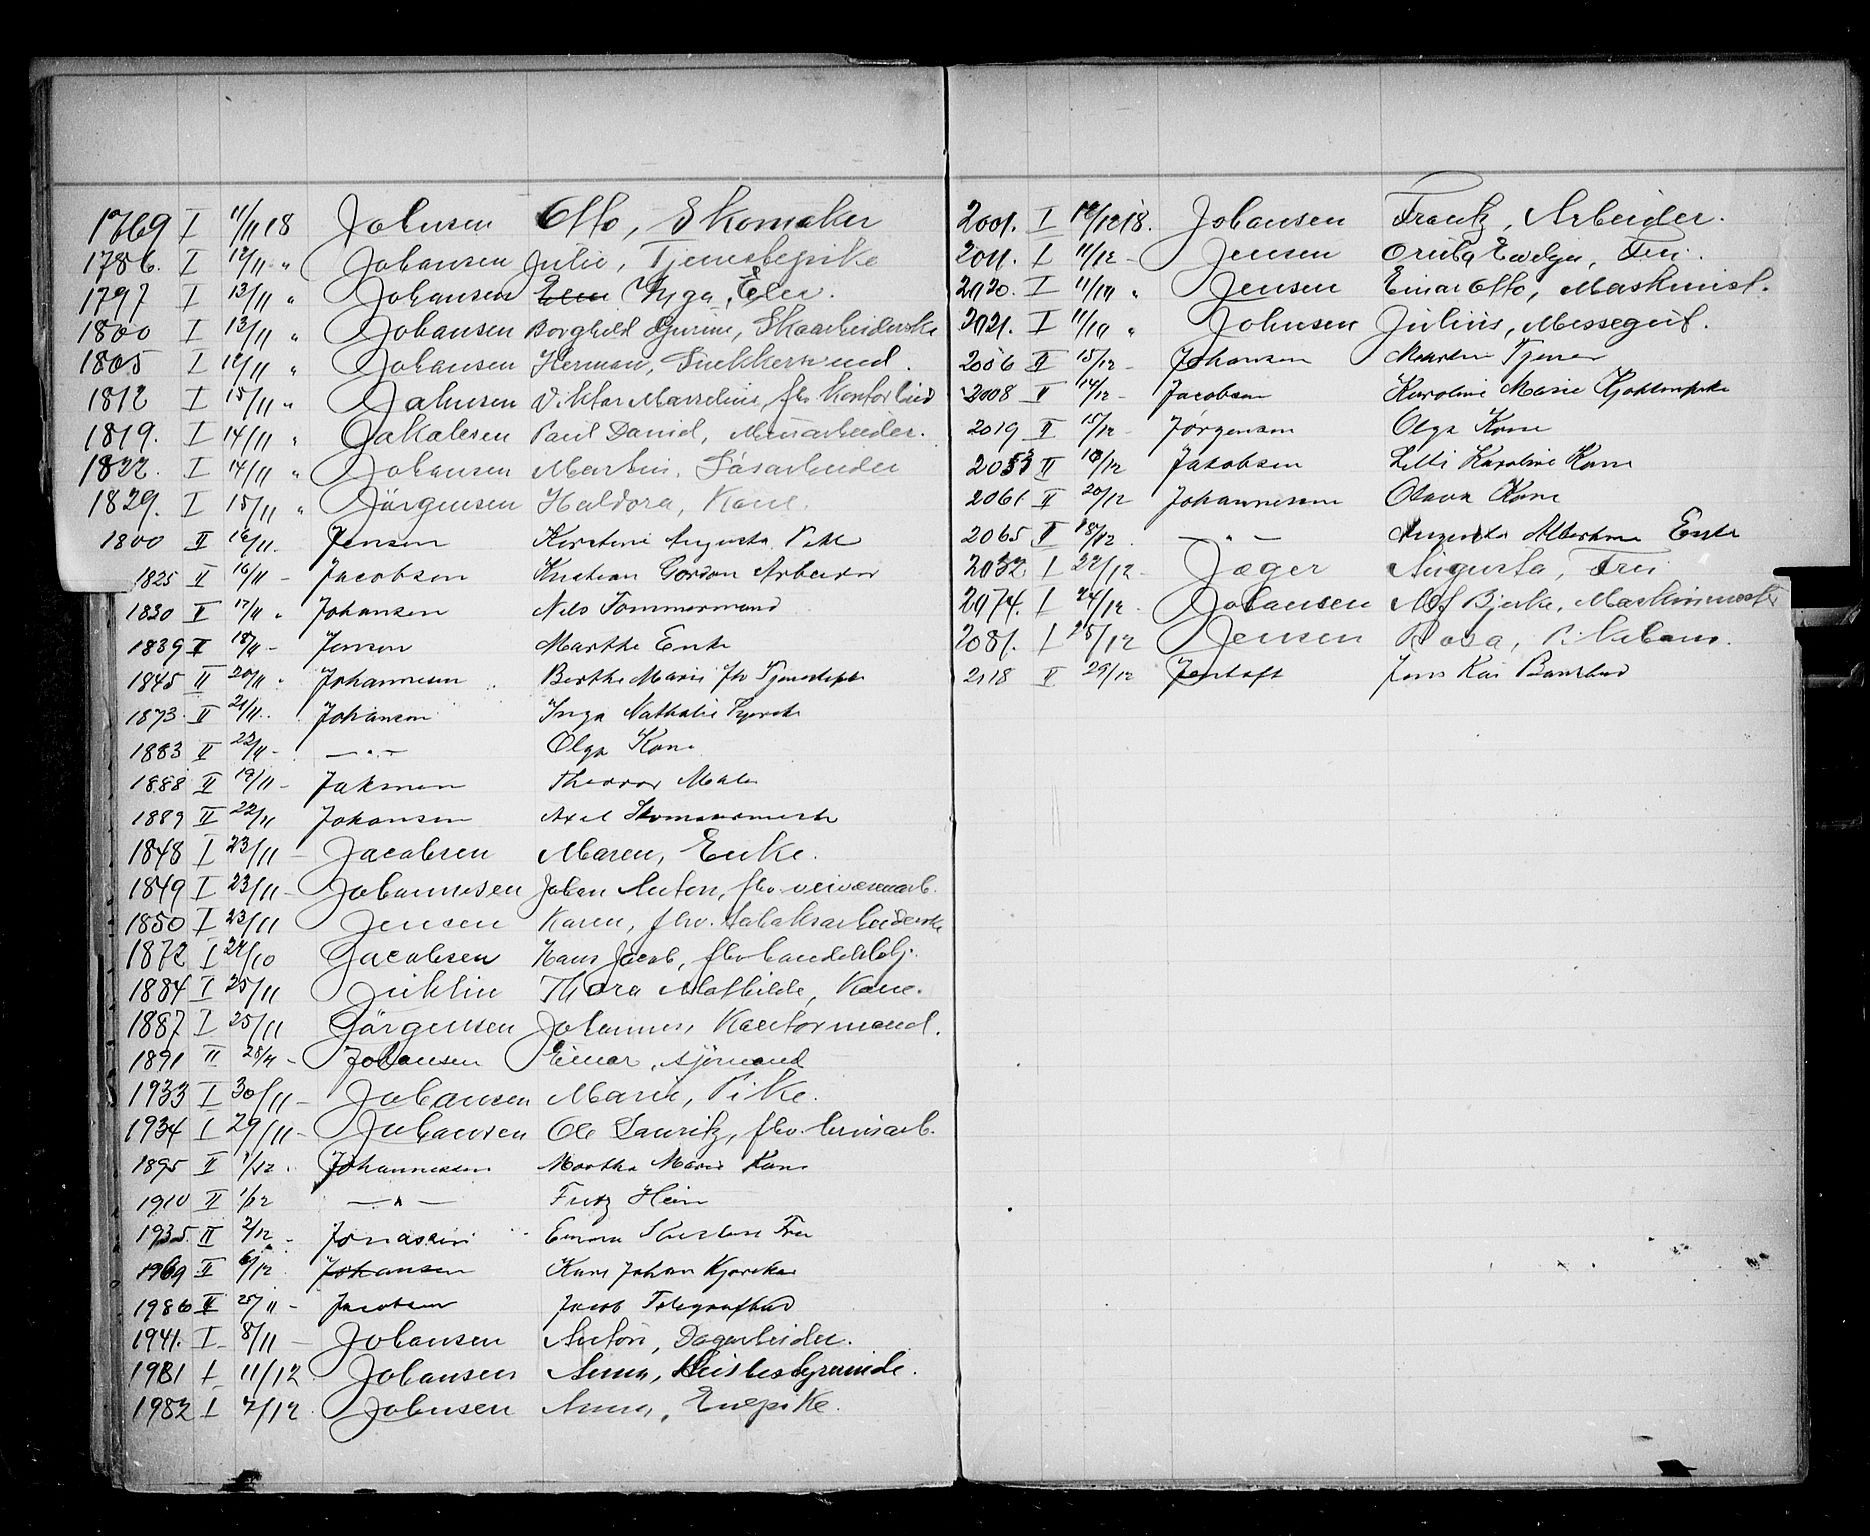 1769 I 11/11 18 Johnsen Otto, Skomaker
1786. I 12/11 " Johansen Julie, Tjenestepike
1797 I 13/11 " Johansen Inga, Elev.
1800 I 13/11 " Johansen Borghild Gurine, Skoarbeiderske
1805 I 12/11 " Johansen Herman, Snekkersvend.
1812 I 15/11 " Johnsen Viktor Marselius, fhv. Kontorbud
1819. I 14/11 " Jakobsen Paul David, Murarbeider.
1822. I 14/11 " Johansen Martin, Gasarbeider
1829. I 15/11 " Jörgensen Haldora, Kone.
1800 II 16/11. Jensen Kirstine Augusta Pike
1825 II 16/11 - Jacobsen Kristian Gordon Arbeider
1830 II 17/11 " Johansen Nils Tømmermand
1839 II 18/11 - Jenson Marthe Enke
1845 II 20/11 " Johannesen Berthe Marie fhv Tjenestepike
1873. II 21/11. Johansen Inga Nathalie
1883 II 22/11 - — " — Olga Kone
1888 II 19/11 - Theodor Maler
1889 II 22/11 Johansen Axel
1848 I 23/11 - Jacobsen Maren, Enke.
1849 I 23/11 - Johannesen Johan Anton, fhv. veivæsenarb.
1850 I 23/11 Jensen Karen, fhv. Tobaksarbeiderske
1872 I 24/10 Jacobsen Hans Jacob, fhv handelsbetj.
1884 I 25/11 Thora Mathilde, Kone.
1887 I 25/11 Jörgensen Johannes, Kontormand.
1891 II 28/11 - Johansen Einar, sjømand
1933 I 30/11 - Johansen Marie, Pike.
1934 I 29/11 - Johansen Ole Lauritz, fhv. brusarb.
1895 II 1/12. Johannessen Marthe Marie Kone
1910 II 1/12 — " — Fritz Hein
1935 II 2/12 - Jonassen Emma Fru
1969 II 6/12. Johansen Karl Johan
1986 II 25/11 - Jacobsen Jacob Telegrafbud
1941. I 8/11 - Johansen Anton, Dagarbeider.
1981 I 11/12 Johansen Anna, Husbestyrerinde.
1982 I 7/12 Johnsen Anna, Enepike.
2001. I 12/12 18. Johansen Frantz, Arbeider.
2011. I 11/12 - Jensen Evelyn, Fru.
2020. I 11/11 " Jensen Einar Otto, Maskinist.
2021. I 11/11 " Johnsen Julius, Messegut.
2006 II 15/12 - Johansen Tjener
2008 II 14/12 - Jacobsen Karoline Marie
2019 II 15/12 - Jørgensen Olga Kone
2053 II 18/12 Jakobsen Karoline Kone
2061 II 20/12 Johannesen Olava Kone
2065 II 18/12. — " — Augusta Albertine Enke
2032 I 22/12 - Jæger Augusta, Fru
2074. I 24/12 - Johansen Alf Bjerke, Maskinmester
2081. I 25/12 Jensen Rosa, Pikebarn.
2118 II 29/12 Jentoft Jens Kai Barnebud